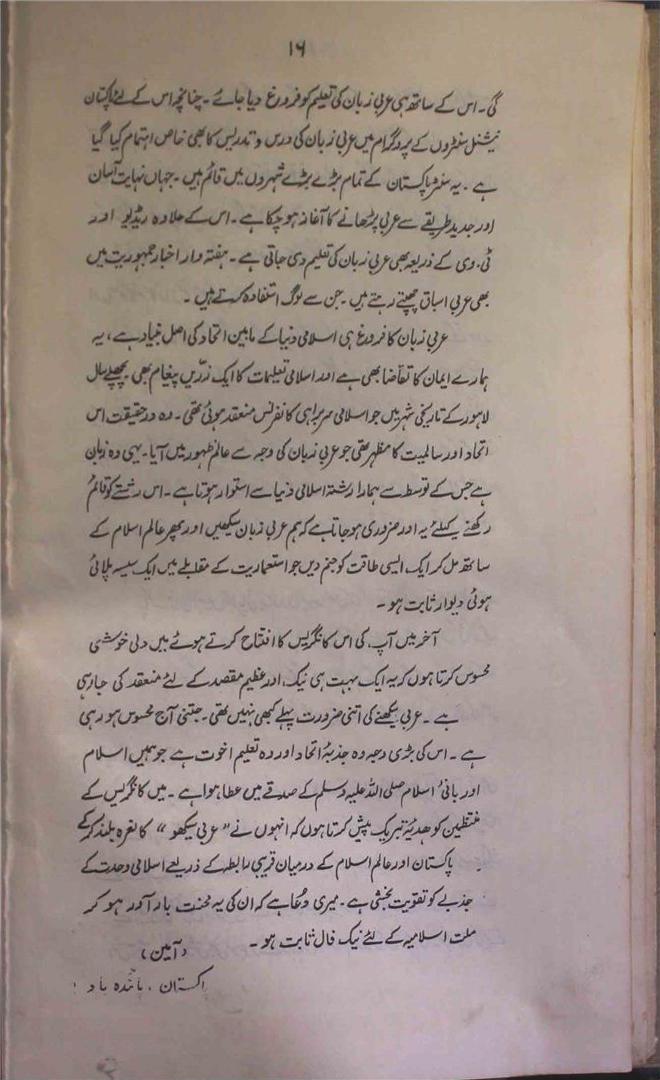 ۱۶
گی۔ اس کے ساتھ ہی عربی زبان کی تعلیم کو فروغ دیا جائے۔ چنانچہ اس کے لئے پاکستان
نیشنل سنٹروں کے پروگرام میں عربی زبان کی درس و تدریس کا بھی خاص اہتمام کیا گیا
ہے۔ یہ سنٹر پاکستان کے تمام بڑے بڑے شہروں میں قائم ہیں۔ جہاں نہایت آسان
اور جدید طریقے سے عربی پڑھانے کا آغاز ہو چکا ہے۔ اس کے علاوہ ریڈیو اور
ٹی۔وی کے ذریعہ بھی عربی زبان کی تعلیم دی جاتی ہے۔ ہفتہ وار اخبار جمہوریت میں
بھی عربی اسباق چھپتے رہتے ہیں۔ جن سے لوگ استفادہ کرتے ہیں۔
عربی زبان کا فروغ ہی اسلامی دنیا کے مابین اتحاد کی اصل بنیاد ہے، یہ
ہمارے ایمان کا تقاضا بھی ہے اور اسلامی تعلیمات کا ایک زرّیں پیغام بھی۔ پچھلے سال
لاہور کے تاریخی شہر میں جو اسلامی سربراہی کانفرنس منعقد ہوئی تھی۔ وہ در حقیقت اس
اتحاد اور سالمیت کا مظہر تھی جو عربی زبان کی وجہ سے عالم ظہور میں آیا۔ یہی وہ زبان
ہے جس کے توسط سے ہمارا رشتہ اسلامی دنیا سے استوار ہوتا ہے۔ اس رشتے کو قائم
رکھنے کیلئے یہ اور ضروری ہو جاتا ہے کہ ہم عربی زبان سیکھیں اور پھر عالم اسلام کے
ساتھ مل کر ایک ایسی طاقت کو جنم دیں جو استعماریت کے مقابلے میں ایک سیسہ پلائی
ہوئی دیوار ثابت ہو۔
آخر میں آپ کی اس کانگریس کا افتتاح کرتے ہوئے میں دلی خوشی
محسوس کرتا ہوں کہ یہ ایک بہت ہی نیک، اور عظیم مقصد کے لئے منعقد کی جا رہی
ہے۔ عربی سیکھنے کی اتنی ضرورت پہلے کبھی نہیں تھی۔ جتنی آج محسوس ہو رہی
ہے۔ اس کی بڑی وجہ وہ جذبۂ اتحاد اور وہ تعلیم اخوت ہے جو ہمیں اسلام
اور بانئ اسلام صلی اللہ علیہ وسلم کے صدقے میں عطا ہوا ہے۔ میں کانگریس کے
منتظمین کو ھدیۂ تبریک پیش کرتا ہوں کہ انہوں نے "عربی سیکھو" کا نعرہ بلند کر کے
پاکستان اور عالم اسلام کے درمیان قریبی رابطہ کے ذریعے اسلامی وحدت کے
جذبے کو تقویت بخشی ہے۔ میری دعا ہے کہ ان کی یہ محنت بار آور ہو کر
ملت اسلامیہ کے لئے نیک فال ثابت ہو۔
(آمین)
پاکستان، پائندہ باد!